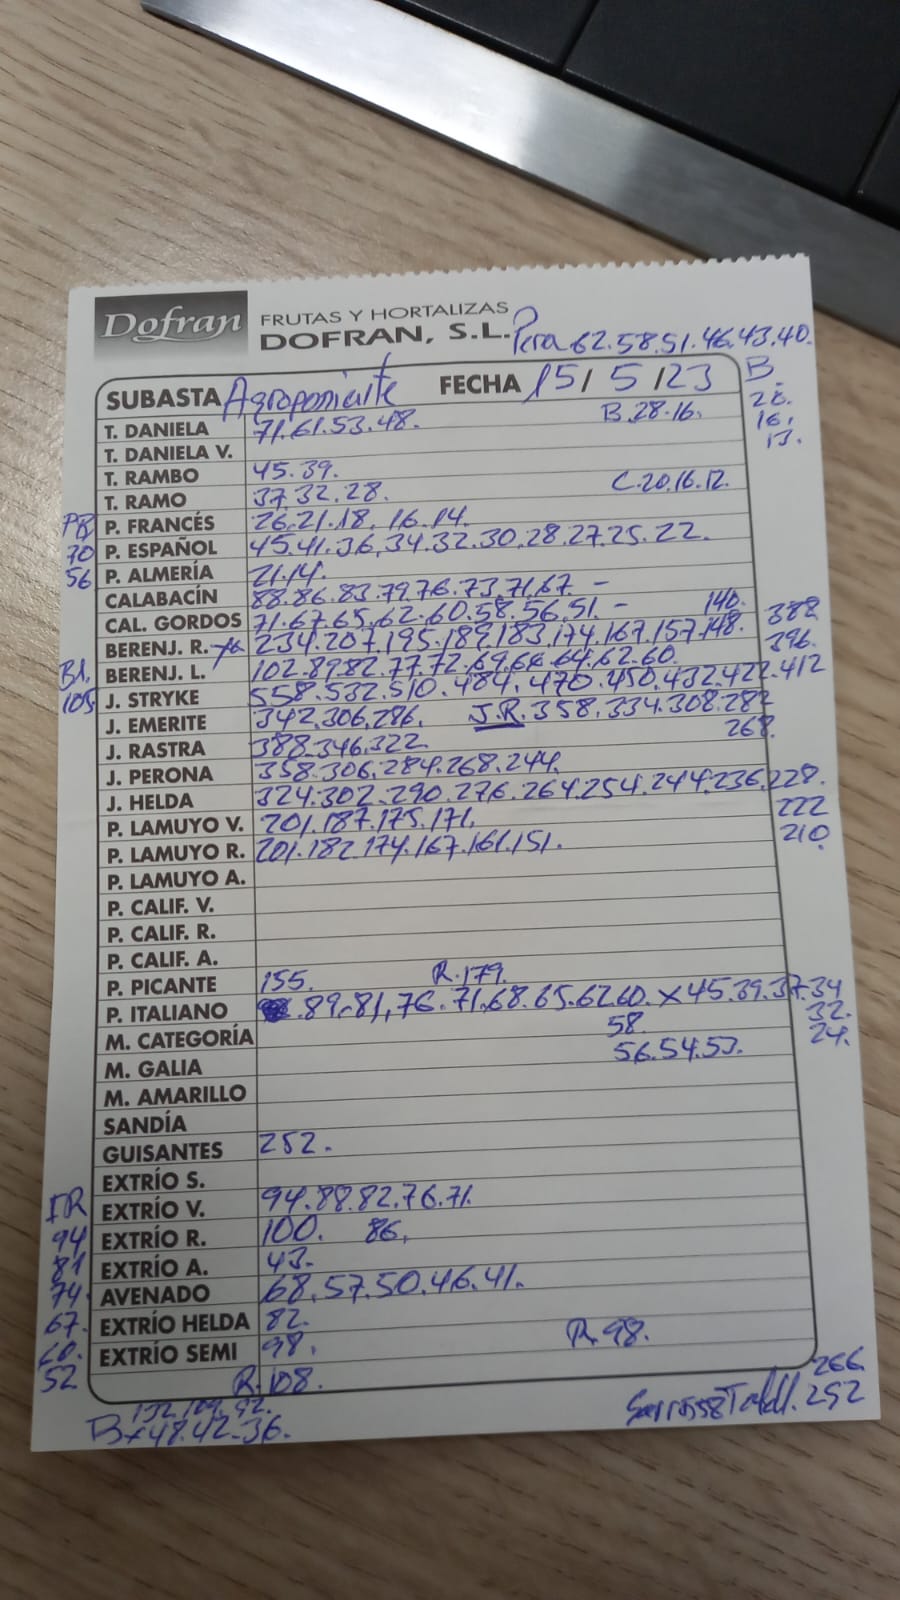 Dofran FRUTAS Y HORTALIZAS
DOFRAN, S.L. Pera 62.58.51.46.43.40.
SUBASTA Agroponiente FECHA 15/5/23 B.
T. DANIELA 71.61.53.48. B.28.16. 28.
16.
T. DANIELA V. 13.
T. RAMBO 45.39.
T. RAMO 37.32.28. C.20.16.12.
PB P. FRANCÉS 26.21.18.16.14.
70 P. ESPAÑOL 45.41.36.34.32.30.28.27.25.22.
56 P. ALMERÍA 21.14.
CALABACÍN 88.86.83.79.76.73.71.67. -
CAL. GORDOS 71.67.65.62.60.58.56.51. - 140.
BERENJ. R. 234.207.195.189.183.174.167.157.148. 388
BERENJ. L. 102.89.82.77.72.69.66.64.62.60. 396.
105 J. STRYKE 558.532.510.484.470.450.432.422.412
J. EMERITE 342.306.286. J.R. 358.334.308.282
J. RASTRA 388.346.322. 268.
J. PERONA 358.306.284.268.244.
J. HELDA 324.302.290.276.264.254.244.236.228.
P. LAMUYO V. 201.187.175.171. 222
P. LAMUYO R. 201.182.174.167.161.151. 210.
P. LAMUYO A.
P. CALIF. V.
P. CALIF. R.
P. CALIF. A.
P. PICANTE 155. R.179.
P. ITALIANO .89.81.76.71.68.65.62.60. x 45.39.37.34
M. CATEGORÍA 58. 32.
M. GALIA 56.54.53. 24.
M. AMARILLO
SANDÍA
GUISANTES 252.
EXTRÍO S.
EXTRÍO V. 94.88.82.76.71.
94 EXTRÍO R. 100. 86.
81 EXTRÍO A. 43.
74. AVENADO 68.57.50.46.41.
67. EXTRÍO HELDA 82.
60. EXTRÍO SEMI 98. R.98.
52 R.108. 266
132.109.92. 252
B x 48.42.36.